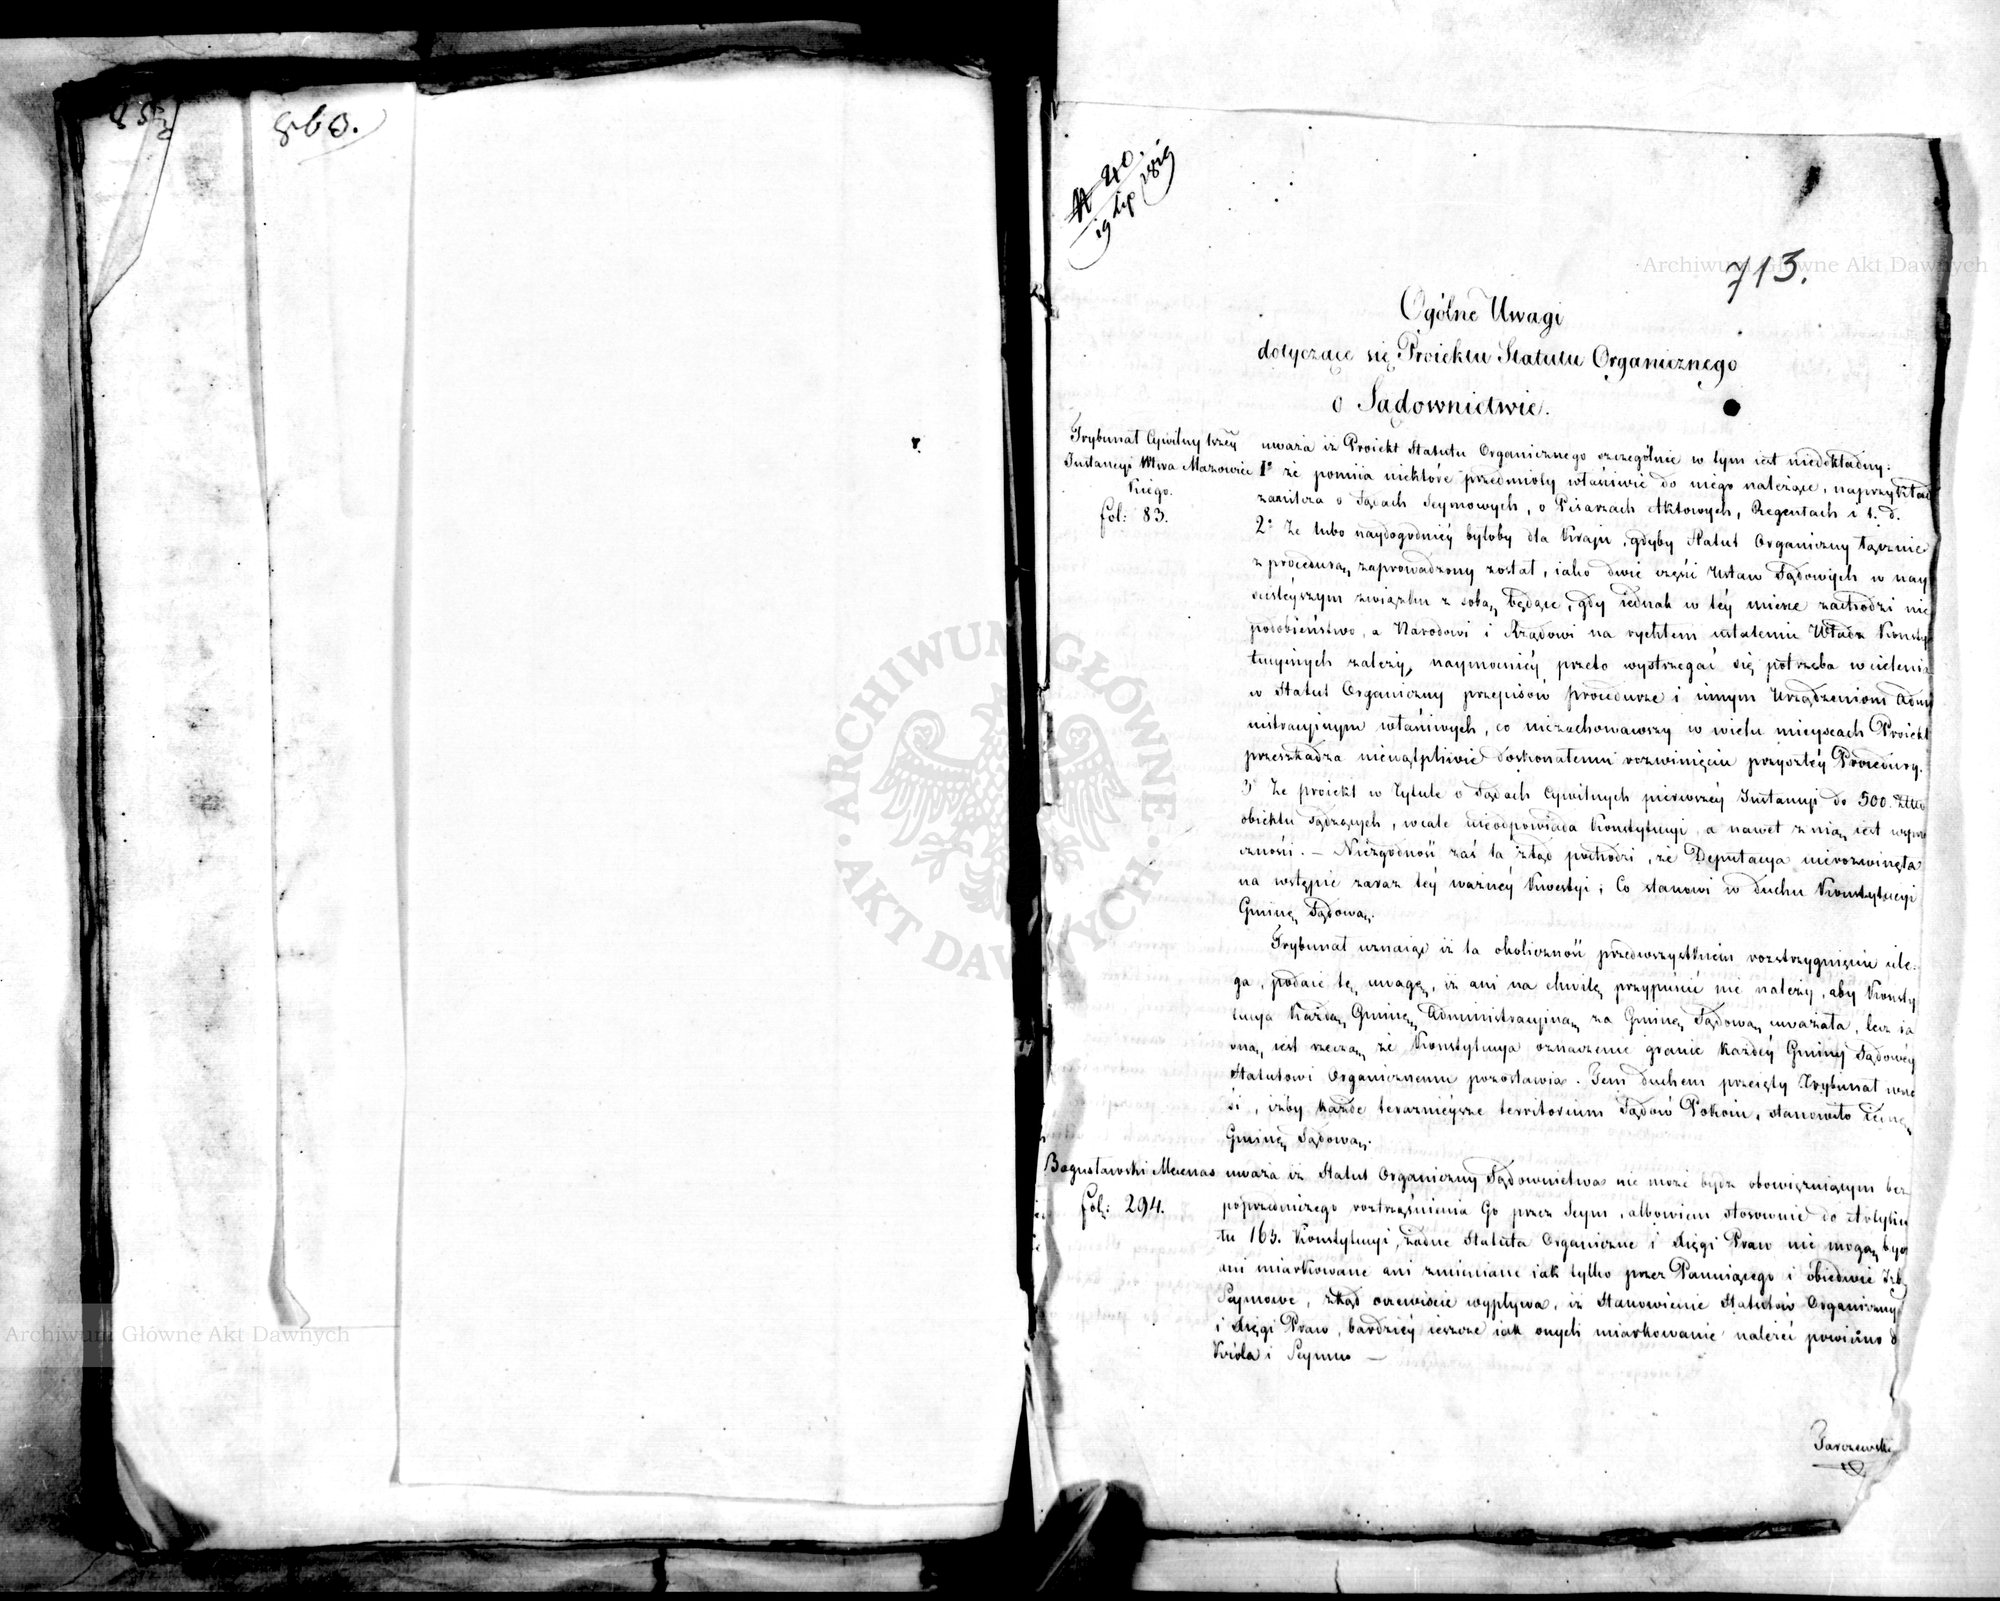 863.
N 40.
19 Lip 1819
713.
Ogólne Uwagi
dotyczące się Proiektu Statutu Organicznego
o Sądownictwie.
Trybunał Cywilny Iszéy
Instancyi Wwa Mazowiec
kiego.
fol: 83.
uważa iż Proiekt Statutu Organicznego szczególnie w tym iest niedokładny:
1º że pomiia niektóre przedmioty właściwie do niego należące, naprzykład
zamilcza o Sądach Seymowych, o Pisarzach Aktowych, Regentach i t. d.
2º Że lubo naydogodniéy byłoby dla Kraju, gdyby Statut Organiczny łącznie
z procedurą zaprowadzony został, iako dwie części Ustaw Sądowych w nay
ściśleyszym związku z sobą będące, gdy iednak w téy mierze zachodzi nie
podobieństwo, a Narodowi i Rządowi na rychłem ustaleniu Władz Konsty
tucyinych zależy, naymocniéy przeto wystrzegać się potrzeba wcielenia
w Statut Organiczny przepisów procedurze i innym Urządzeniom Admi
nistracyinym właściwych, co niezachowawszy w wielu mieyscach Proiekt
przeszkadza niewątpliwie doskonałemu rozwinięciu przyszłéy Procedury.
3º Że proiekt w Tytule o Sądach Cywilnych pierwszéy Instancyi do 500. Złł
obiektu sądzących, wcale nieodpowiada Konstytucyi, a nawet z nią iest w sprze
czności. – Niezgodność zaś ta ztąd pochodzi, że Deputacya nierozwinęła
na wstępie zaraz téy ważnéy kwestyi; Co stanowi w duchu Konstytucyi
Gminę Sądową.
Trybunał uznaiąc iż ta okoliczność przedewszystkiem rozstrzygnięciu ule-
ga, podaie tę uwagę, iż ani na chwilę przypuścić nie należy, aby Konsty
tucya każdą Gminę Administracyiną za Gminę Sądową uważała, lecz ia
sną iest rzeczą że Konstytucya oznaczenie granic każdéy Gminy Sądowéy
Statutowi Organicznemu pozostawia. Tem duchem przeięty Trybunał wno
si, iżby każde terazniéysze territorium Sądów Pokoiu, stanowiło iednę
Gminę Sądową.
Bogusławski Mecenas
fol: 294.
uważa iż Statut Organiczny Sądownictwa nie może bydź obowięzuiącym bez
poprzedniczego roztrząśnienia Go przez Seym, albowiem stosownie do Artyku
łu 163. Konstytucyi, żadne Statuta Organiczne i Xięgi Praw nie mogą być
ani miarkowane ani zmieniane iak tylko przez Panuiącego i obiedwie Izby
Seymowe, zkąd oczewiście wypływa, iż Stanowienie Statutów Organicznych
i Xięgi Praw, bardziéy ieszcze iak onych miarkowanie należeć powinno do
Króla i Seymu —
Jarczewski
Archiwum Główne Akt Dawnych
ARCHIWUM GŁÓWNE AKT DAWNYCH
Archiwum Główne Akt Dawnych